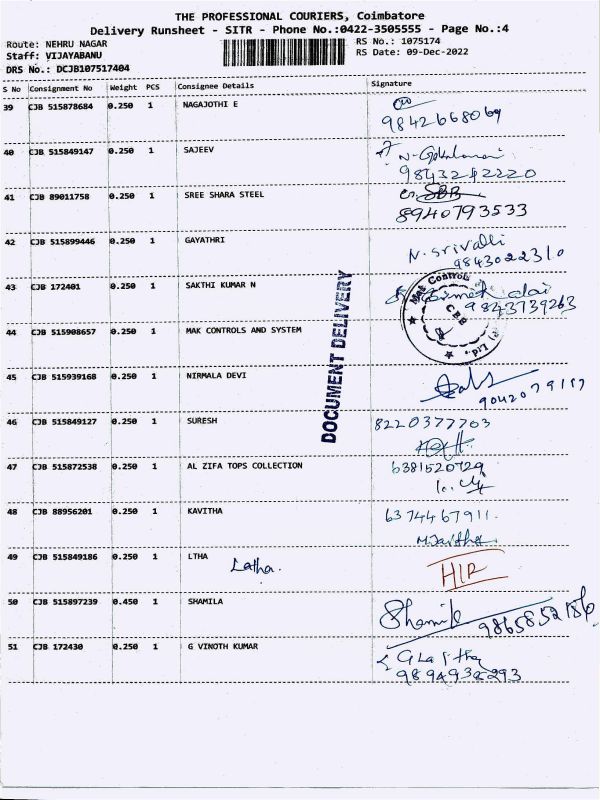 THE PROFESSIONAL COURIERS, Coimbatore
Delivery Runsheet - SITR - Phone No.:0422-3505555 - Page No.:4
Route: NEHRU NAGAR
RS No.: 1075174
Staff: VIJAYABANU
RS Date: 09-Dec-2022
DRS No.: DCJB107517404
S No Consignment No Weight PCS Consignee Details Signature
39 CJB 515878684 0.250 1 NAGAJOTHI E
9842668069
40 CJB 515849147 0.250 1 SAJEEV
9843242220
41 CJB 89011758 0.250 1 SREE SHARA STEEL
8940793533
42 CJB 515899446 0.250 1 GAYATHRI N. Srivalli
9843022310
43 CJB 172401 0.250 1 SAKTHI KUMAR N
9843739263
Mak Controls
CBE
Ltd.,
44 CJB 515908657 0.250 1 MAK CONTROLS AND SYSTEM
DOCUMENT DELIVERY
45 CJB 515939168 0.250 1 NIRMALA DEVI
46 CJB 515849127 0.250 1 SURESH 8220377703
47 CJB 515872538 0.250 1 AL ZIFA TOPS COLLECTION 6381520729
48 CJB 88956201 0.250 1 KAVITHA 6374467911.
49 CJB 515849186 0.250 1 LTHA Latha. HIR
50 CJB 515897239 0.450 1 SHAMILA
51 CJB 172430 0.250 1 G VINOTH KUMAR
9894938293